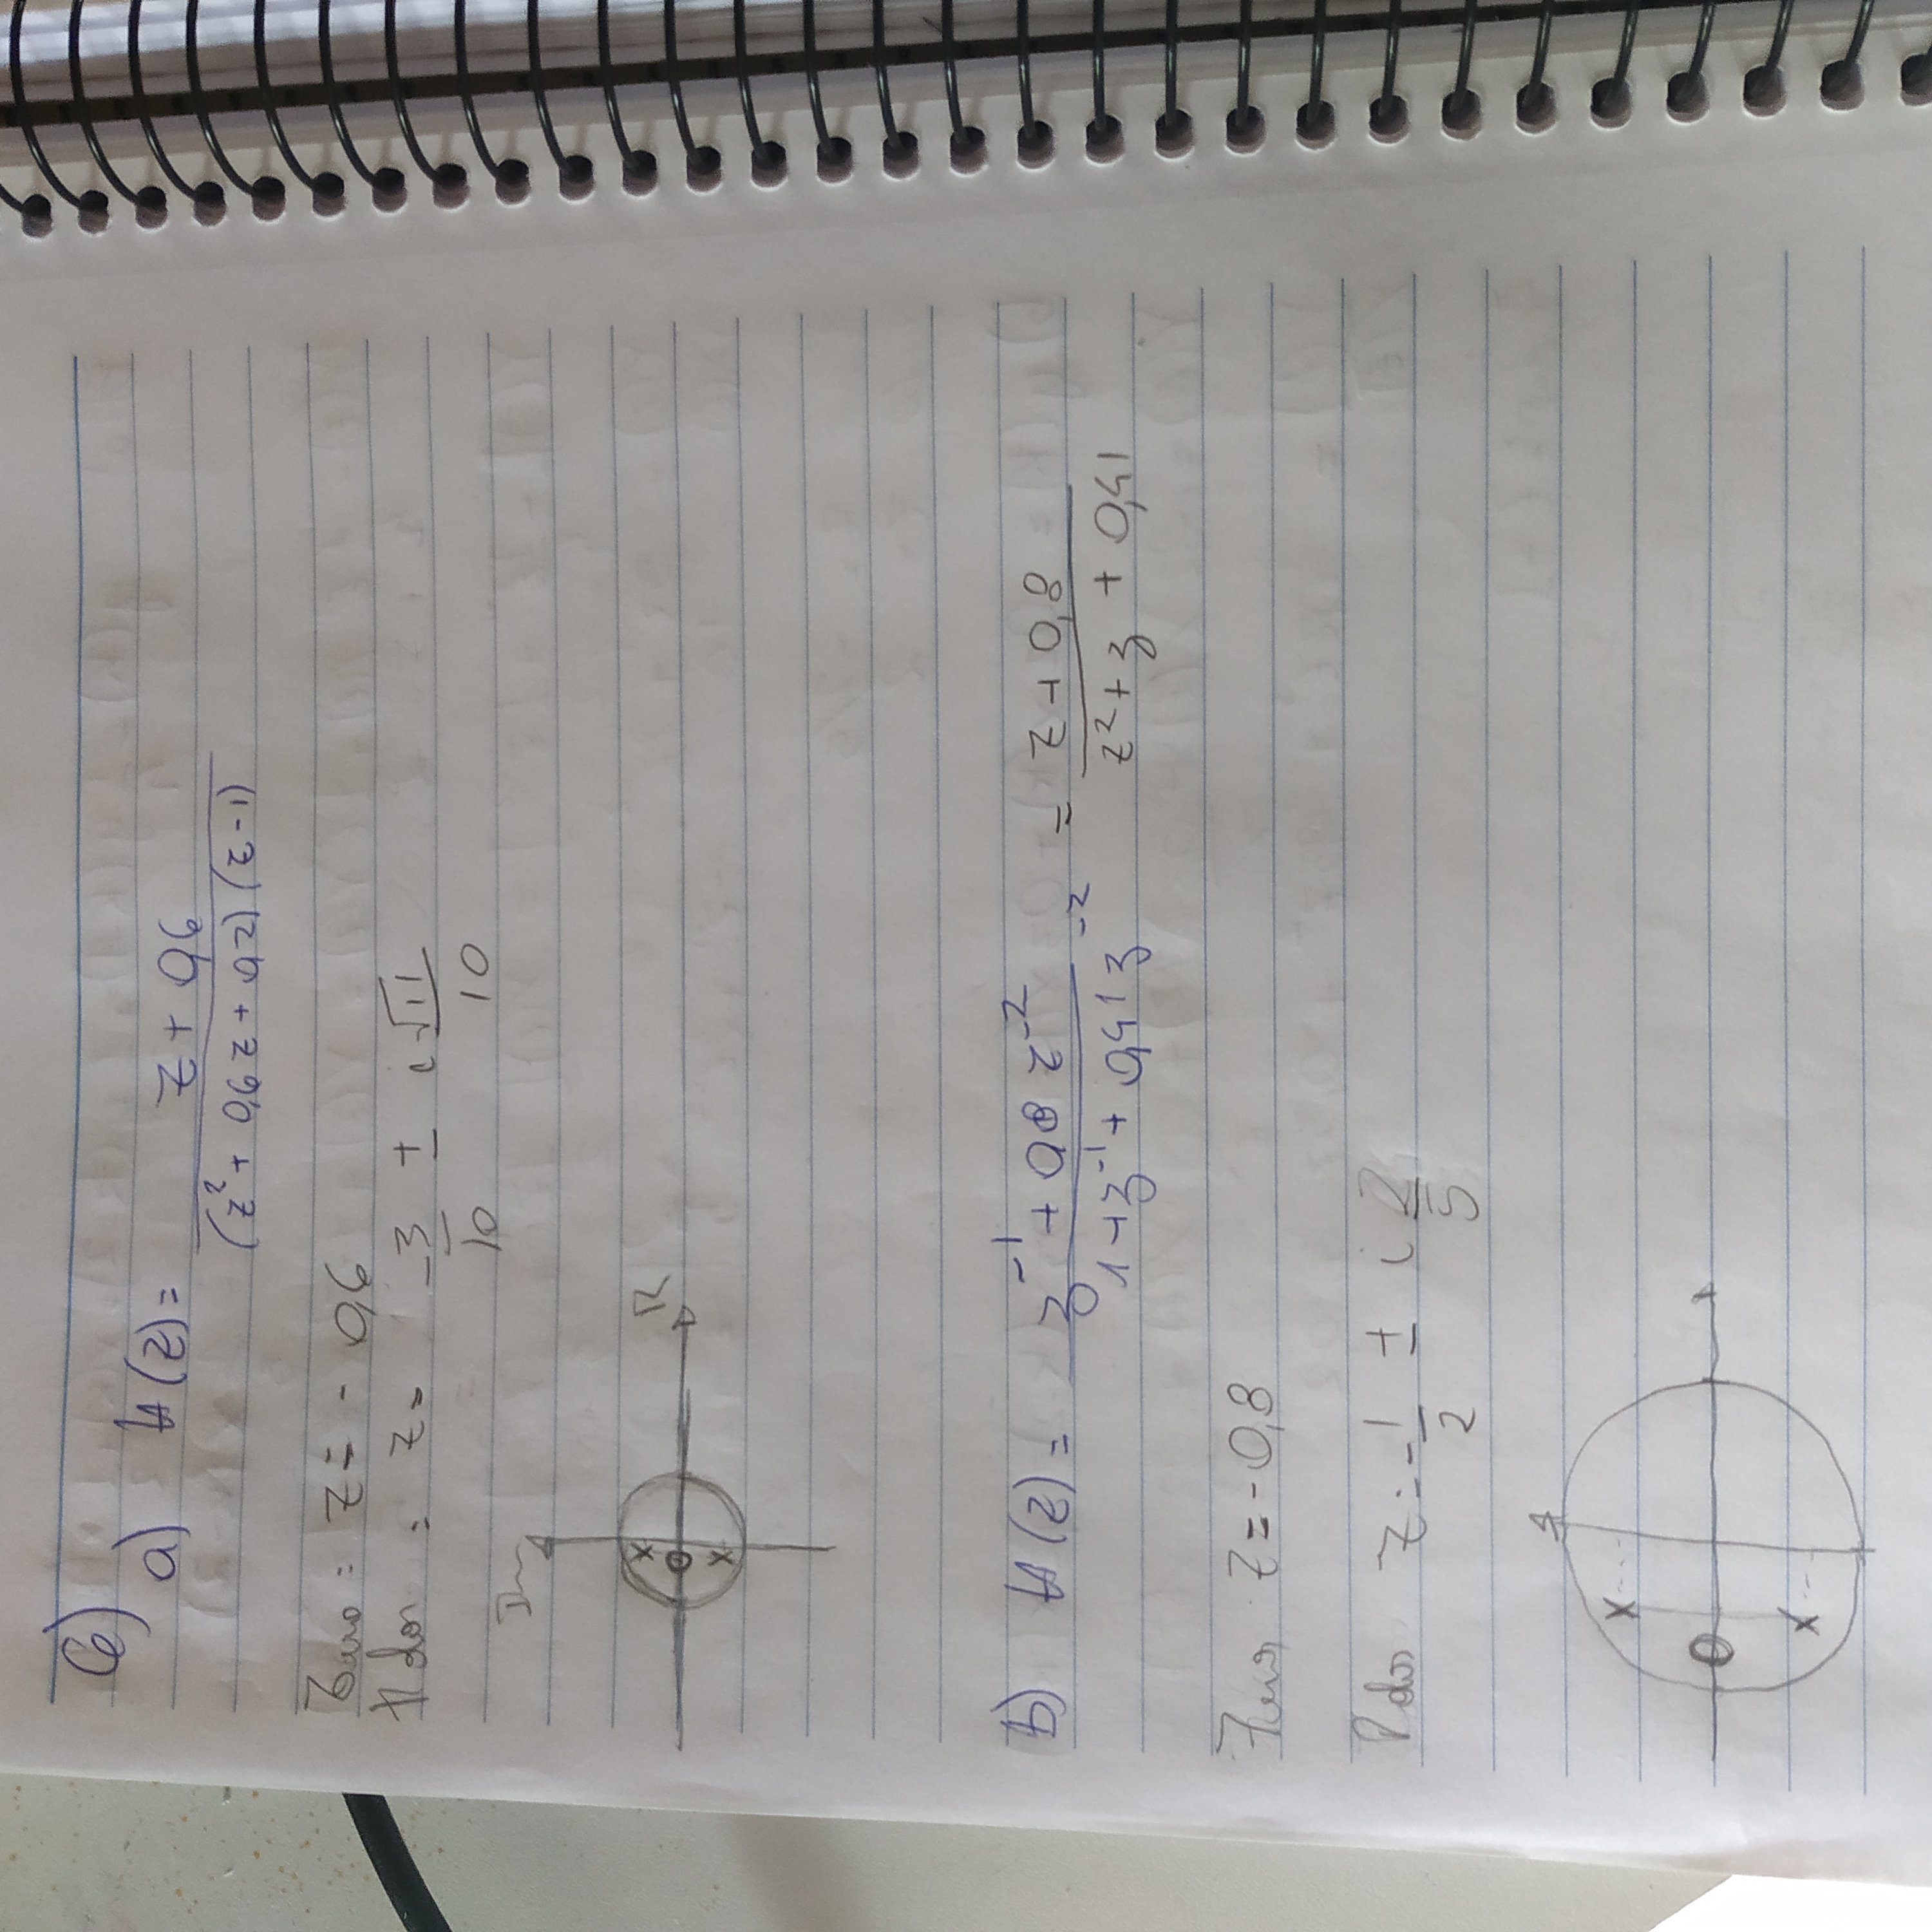 6)
a) H(z) = z + 0,6 / (z² + 0,6z + 0,2)(z-1)
Zero: z = -0,6
Polos: z = -3/10 ± i√11/10
Im
R
b) H(z) = z⁻¹ + 0,8 z⁻² / 1 + z⁻¹ + 0,41 z⁻² = z + 0,8 / z² + z + 0,41
Zeros z = -0,8
Polos z = -1/2 ± i 2/5